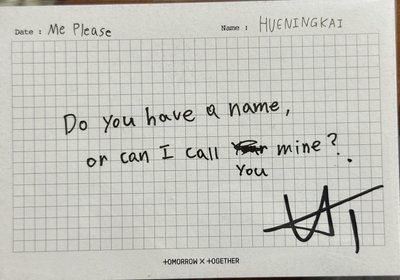 Date : Me Please
Name : HUENINGKAI
Do you have a name,
or can I call mine?
you
TOMORROW X TOGETHER